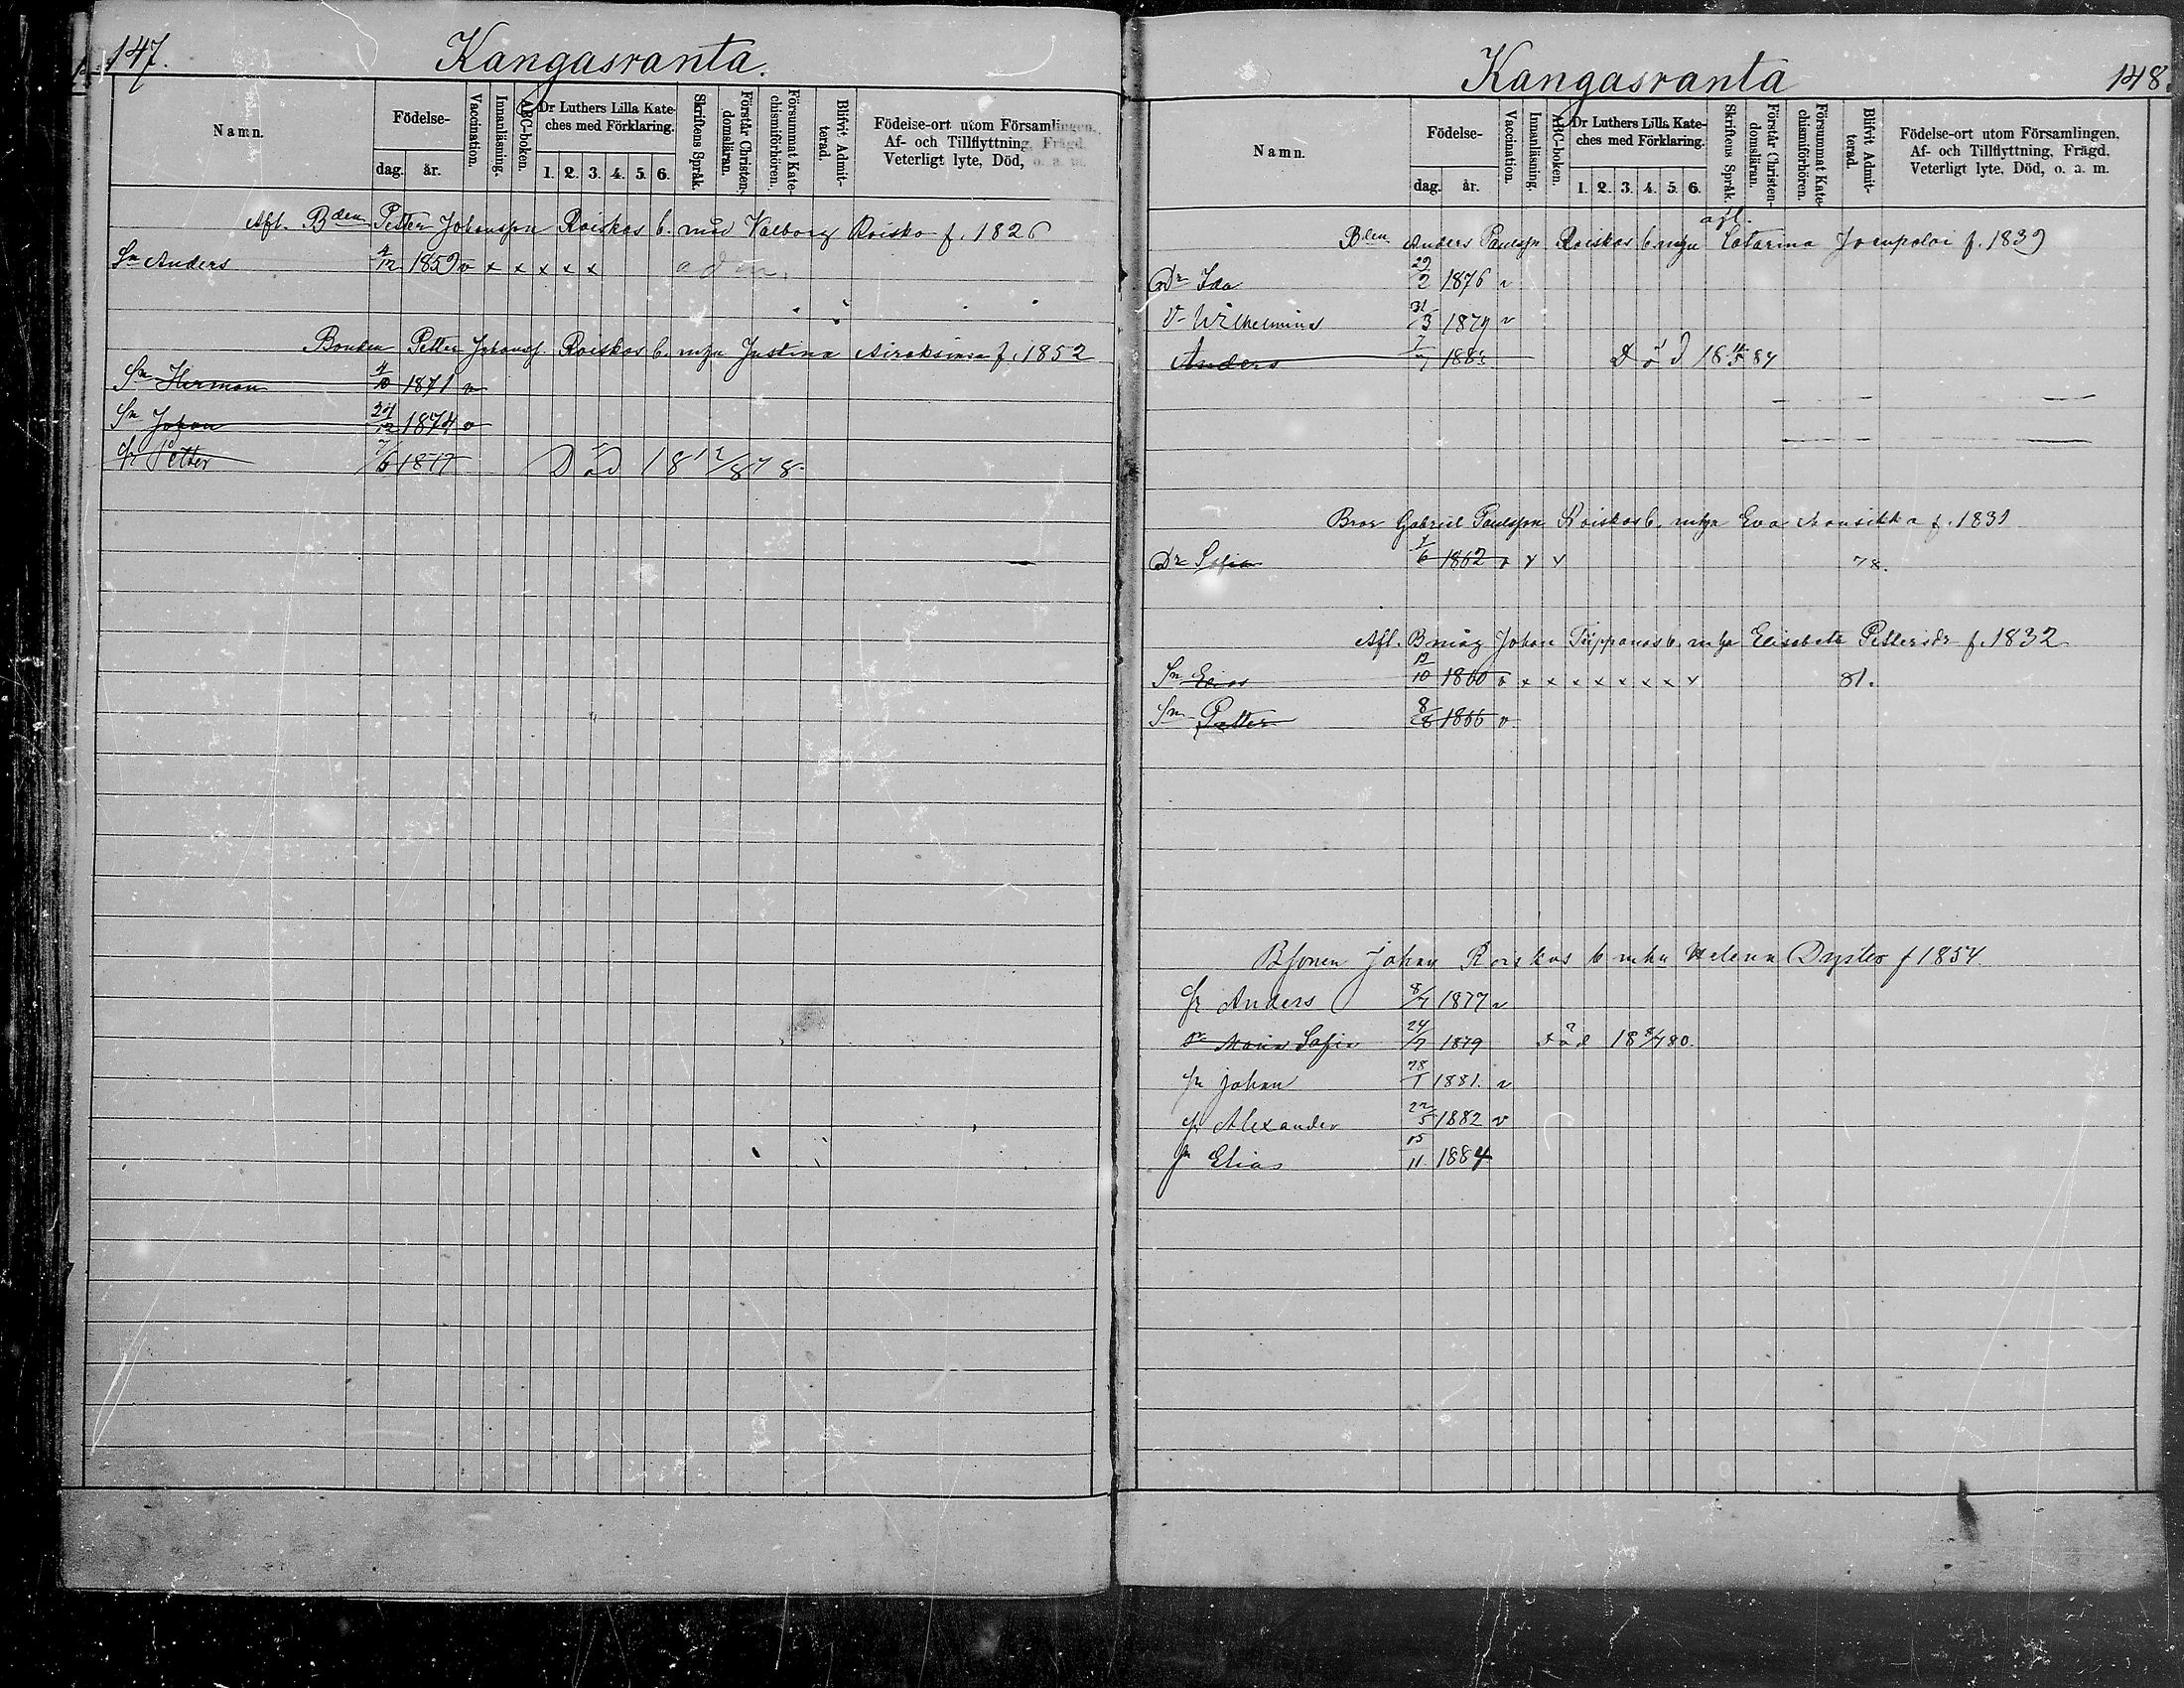 147.
Kangasranta.
Namn.
Födelse-
dag. år.
Vaccination.
Innanläsning.
ABC-boken.
Dr Luthers Lilla Kate-
ches med Förklaring.
1. 2. 3. 4. 5. 6.
Skriftens Språk.
Förstår Christen-
domsläran.
Försummat Kate-
chismiförhören.
Blifvit Admit-
terad.
Födelse-ort utom Församlingen,
Af- och Tillflyttning, Frägd,
Veterligt lyte, Död, o. a. m.
Afl. Bden Petter Johansson Roiskos b. med Valborg Roisko f. 1826
Sn Anders 4/12 1859 v x x x x x adm.
Bonden Petter Johanss. Roiskos b. m hu Justina Airaksinen f. 1852
Sn Herman 4/10 1871 v
Sn Johan 24/12 1874 v
Sn Petter 7/6 1877 Död 18 12/8 78.
Kangasranta
148.
Namn.
Födelse-
dag. år.
Vaccination.
Innanläsning.
ABC-boken.
Dr Luthers Lilla Kate-
ches med Förklaring.
1. 2. 3. 4. 5. 6.
Skriftens Språk.
Förstår Christen-
domsläran.
Försummat Kate-
chismiförhören.
Blifvit Admit-
terad.
Födelse-ort utom Församlingen,
Af- och Tillflyttning, Frägd,
Veterligt lyte, Död, o. a. m.
afl.
Bden Anders Paulsson Roiskos b m hu Catarina f. 1839
Dr Ida 29/2 1876 v
D- Wilhelmina 31/3 1879 v
Anders 1883 Död 18 /5 84
Bror Gabriel Paulsson Roiskos b. m hu Eva Mansikka f. 1831
Dr Sofia 7/6 1862 v x x 78.
Afl. Bmåg Johan Tiippanas b. m hu Elisabeth Pettersdr f. 1832
Sn Elias 12/10 1860 v x x x x x x x x 81.
Sn Petter 8/8 1866 v
Bsonen Johan Roiskos b m hu Helena Dyster f 1854.
Sn Anders 8/7 1877 v
Dr Maria Sofia 24/7 1879 Död 18 /7 80.
Sn Johan 28/1 1881. v
Sn Alexander 22/5 1882 v
Sn Elias 15/11 1884